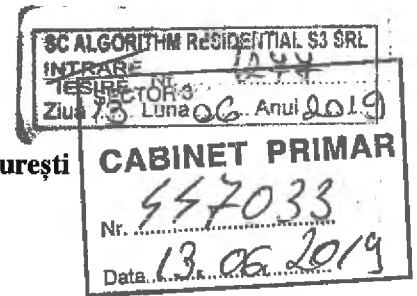 SC ALGORITHM RESIDENTIAL S3 SRL
INTRARE
IESIRE Nr. 1277
SECTOR 3
Ziua 13 Luna 06 Anul 2019
urești
CABINET PRIMAR
Nr. 447033
Data 13. 06. 2019